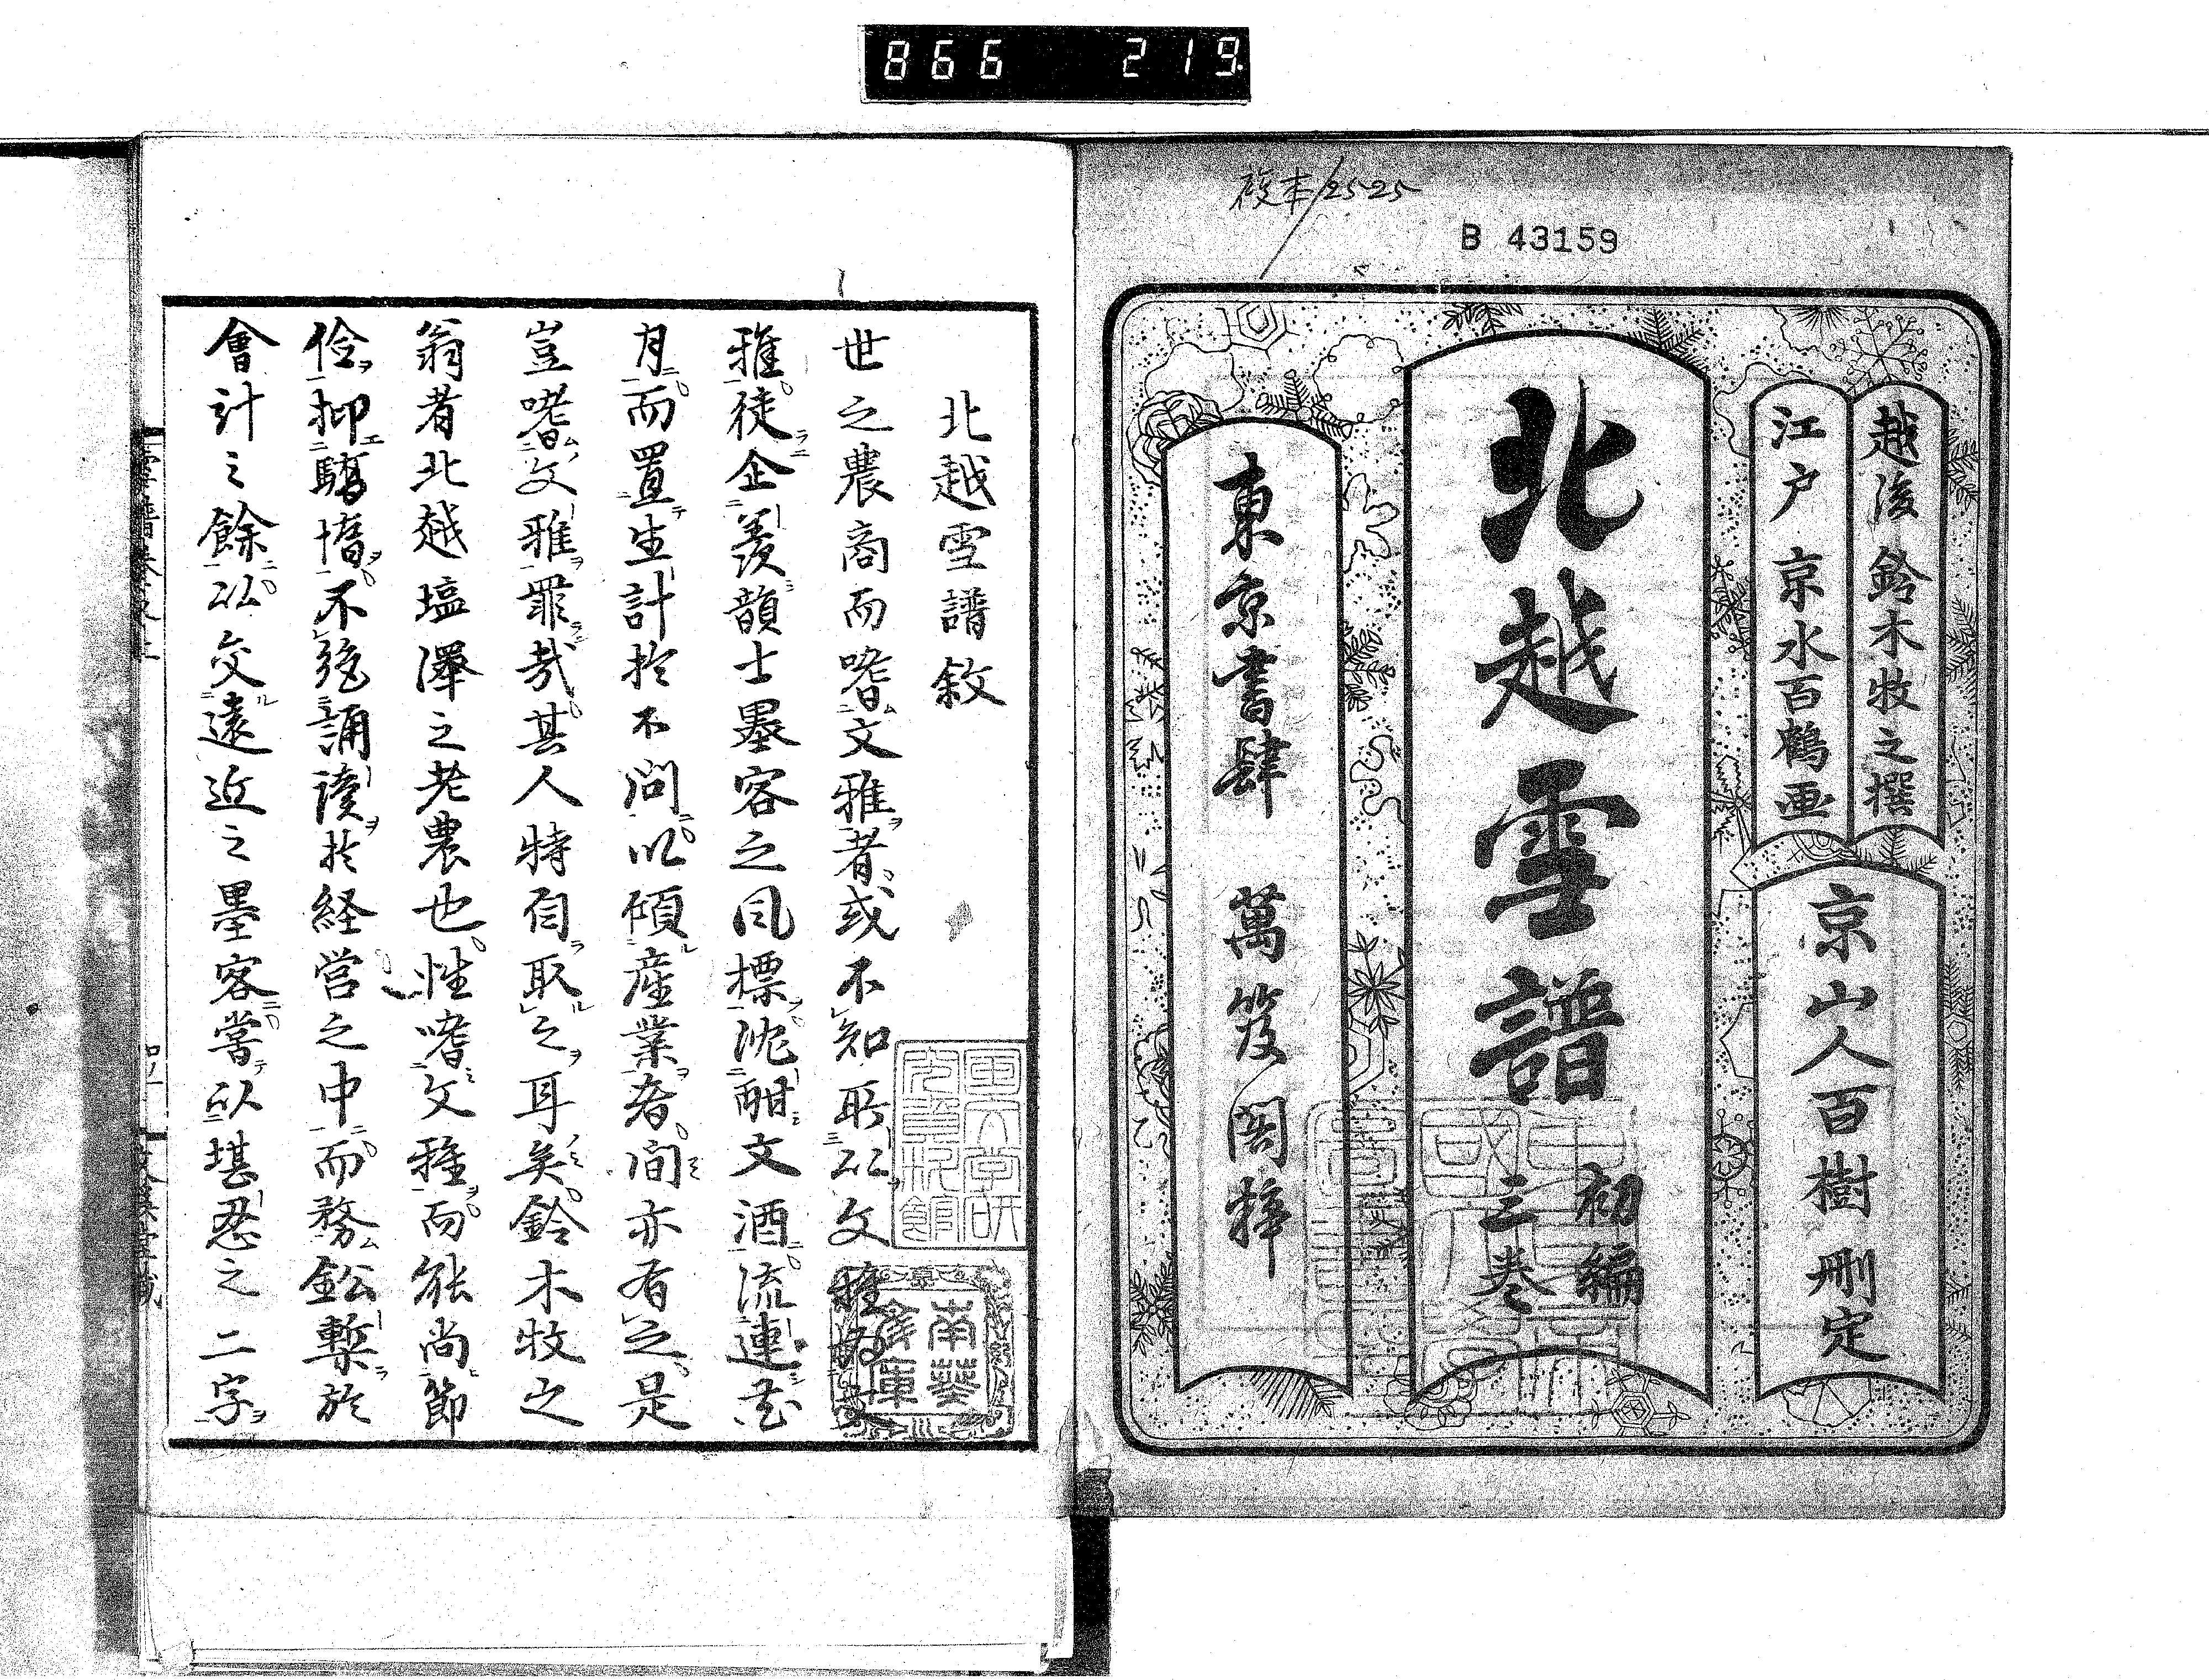 866 219
複本/2525
B 43159
越後 鈴木牧之撰
江戸 京水百鶴画
京山人百樹刪定
北越雪譜
初編
三巻
東京書肆 萬笈閣梓
北越雪譜敘
世之農商而嗜文雅者或不知所以文雅
雅徒企羨韻士墨客之風標沈酣文酒流連花
月而置生計於不問以傾産業者間亦有之是
豈嗜文雅罪哉其人特自取之耳矣鈴木牧之
翁者北越塩澤之老農也性嗜文雅而能尚節
儉抑驕惰不廃誦讀於経営之中而務鉛槧於
會計之餘以交遠近之墨客嘗以堪忍之二字
南葵文庫